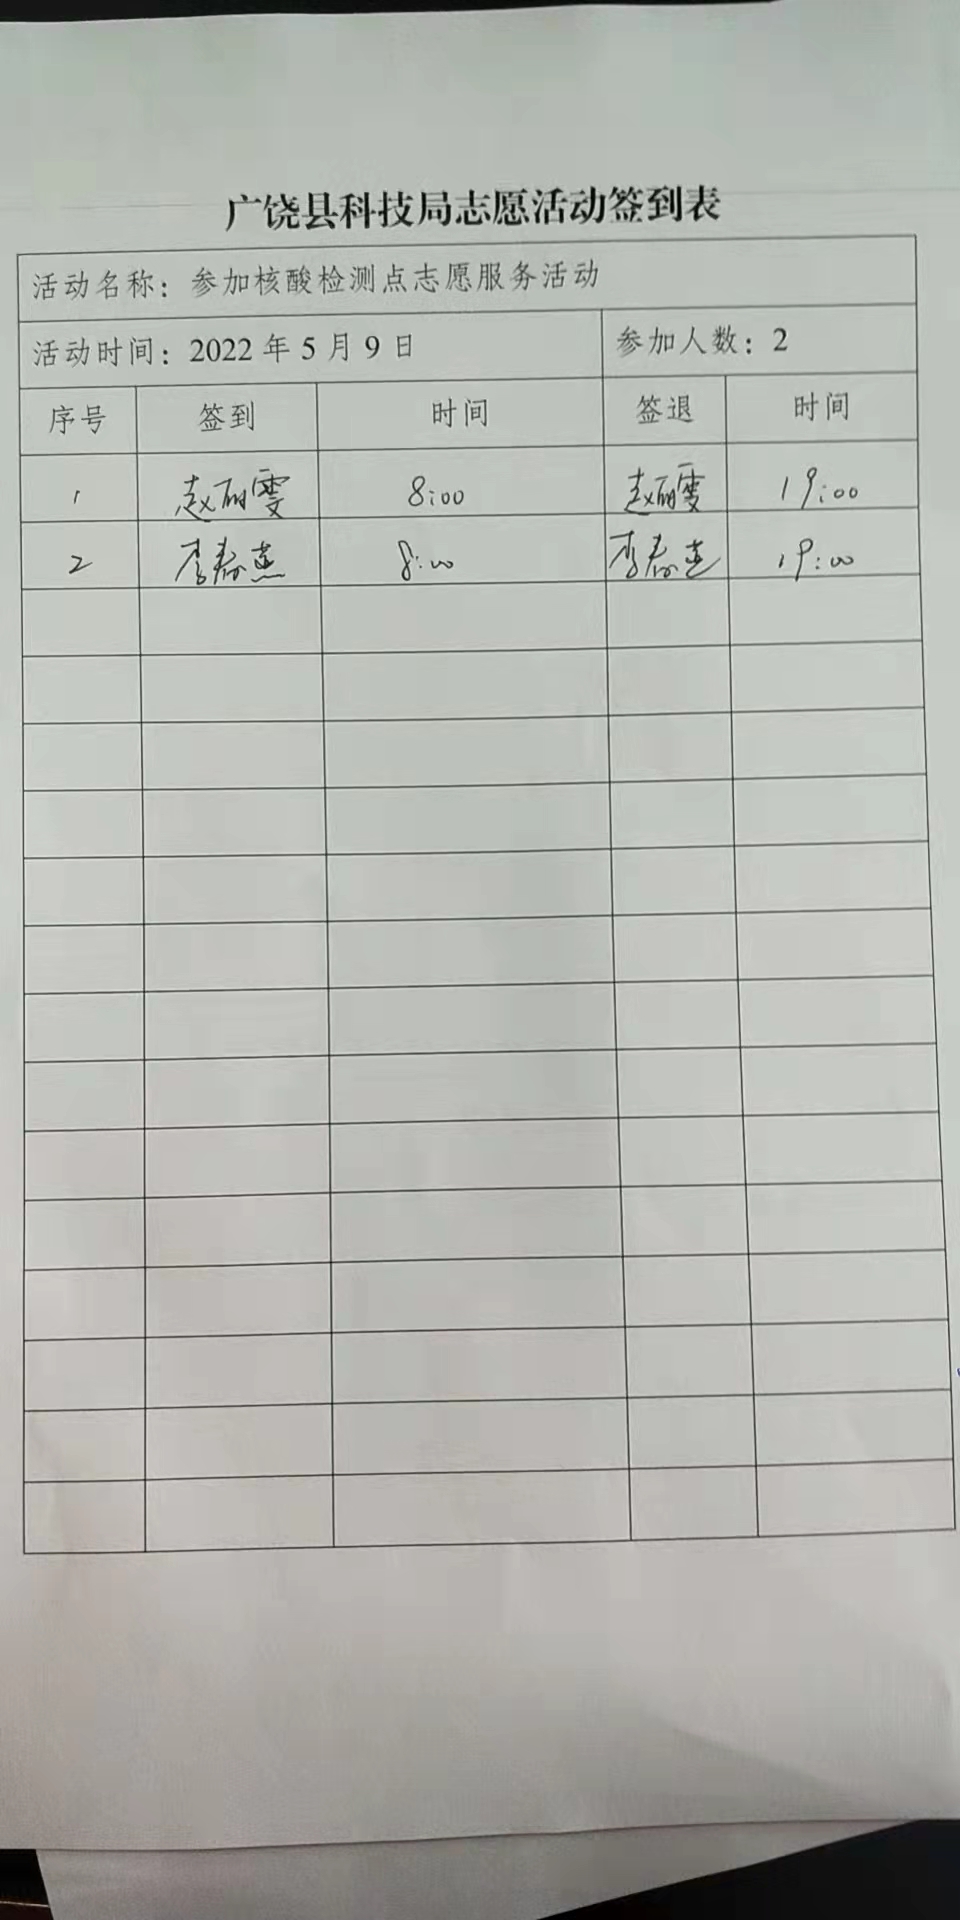 广饶县科技局志愿活动签到表
活动名称：参加核酸检测点志愿服务活动
活动时间：2022 年 5 月 9 日 参加人数：2
序号 签到 时间 签退 时间
1 赵丽雯 8:00 赵丽雯 19:00
2 李春 8:00 李春 19:00